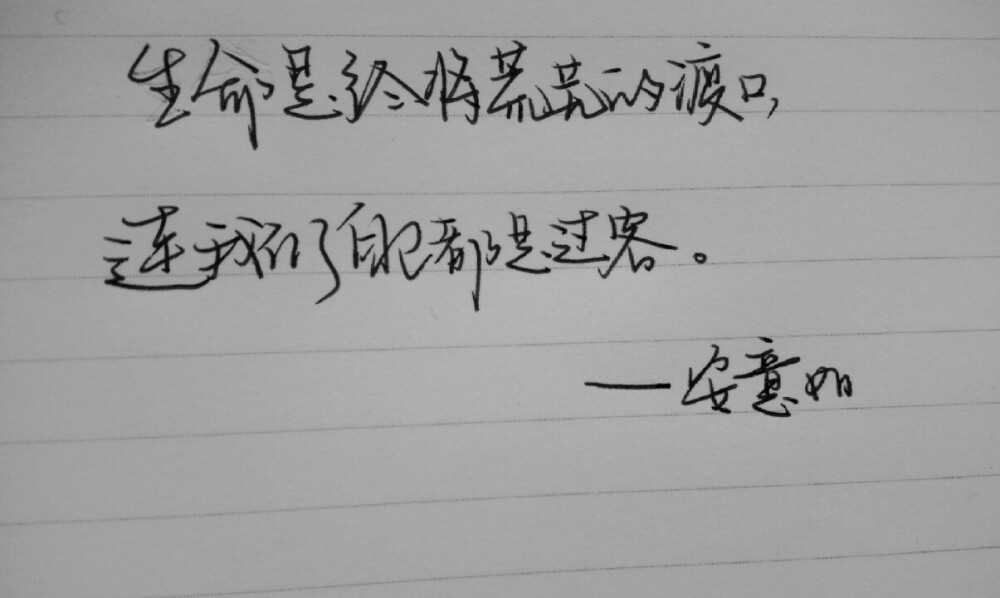 生命是终将荒芜的渡口,
连我们自己都是过客。
——安意如